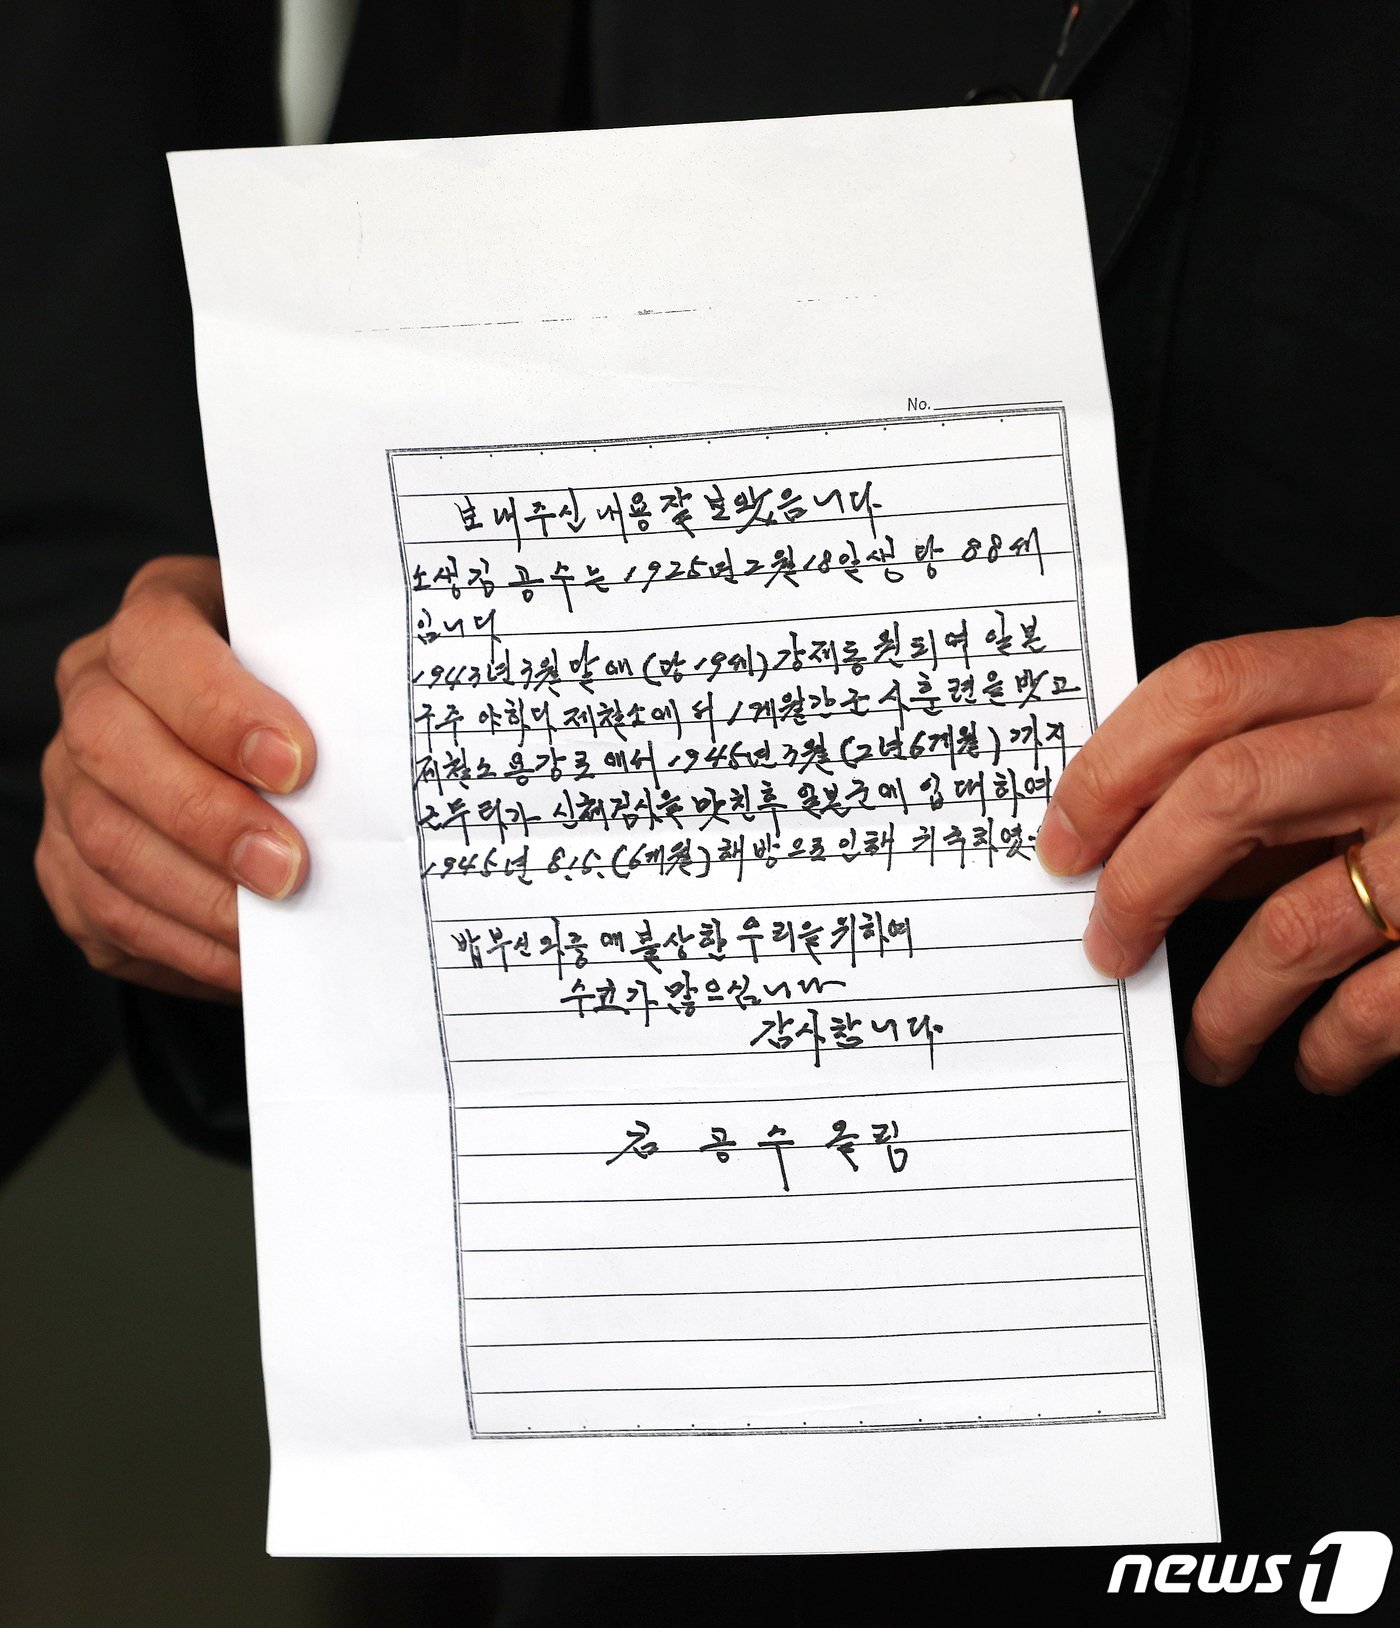 No.
보내주신 내용 잘 보았음니다
소생 김공수는 1925년 2월 18일생 당 88세
임니다
1943년 3월 말에 (당 19세) 강제동원 되여 일본
구주 야하다 제철소에서 1개월간 군사훈련을 맛고
제철소 용강로에서 1945년 3월 (2년6개월) 까지
근무타가 신체검사를 맛친후 일본군에 입대하여
1945년 8.15. (6개월) 해방으로 인해 귀국하였
밥부신 와중에 불상한 우리를 위하여
수고가 많으심니다
감사합니다.
김 공 수 올림
news1